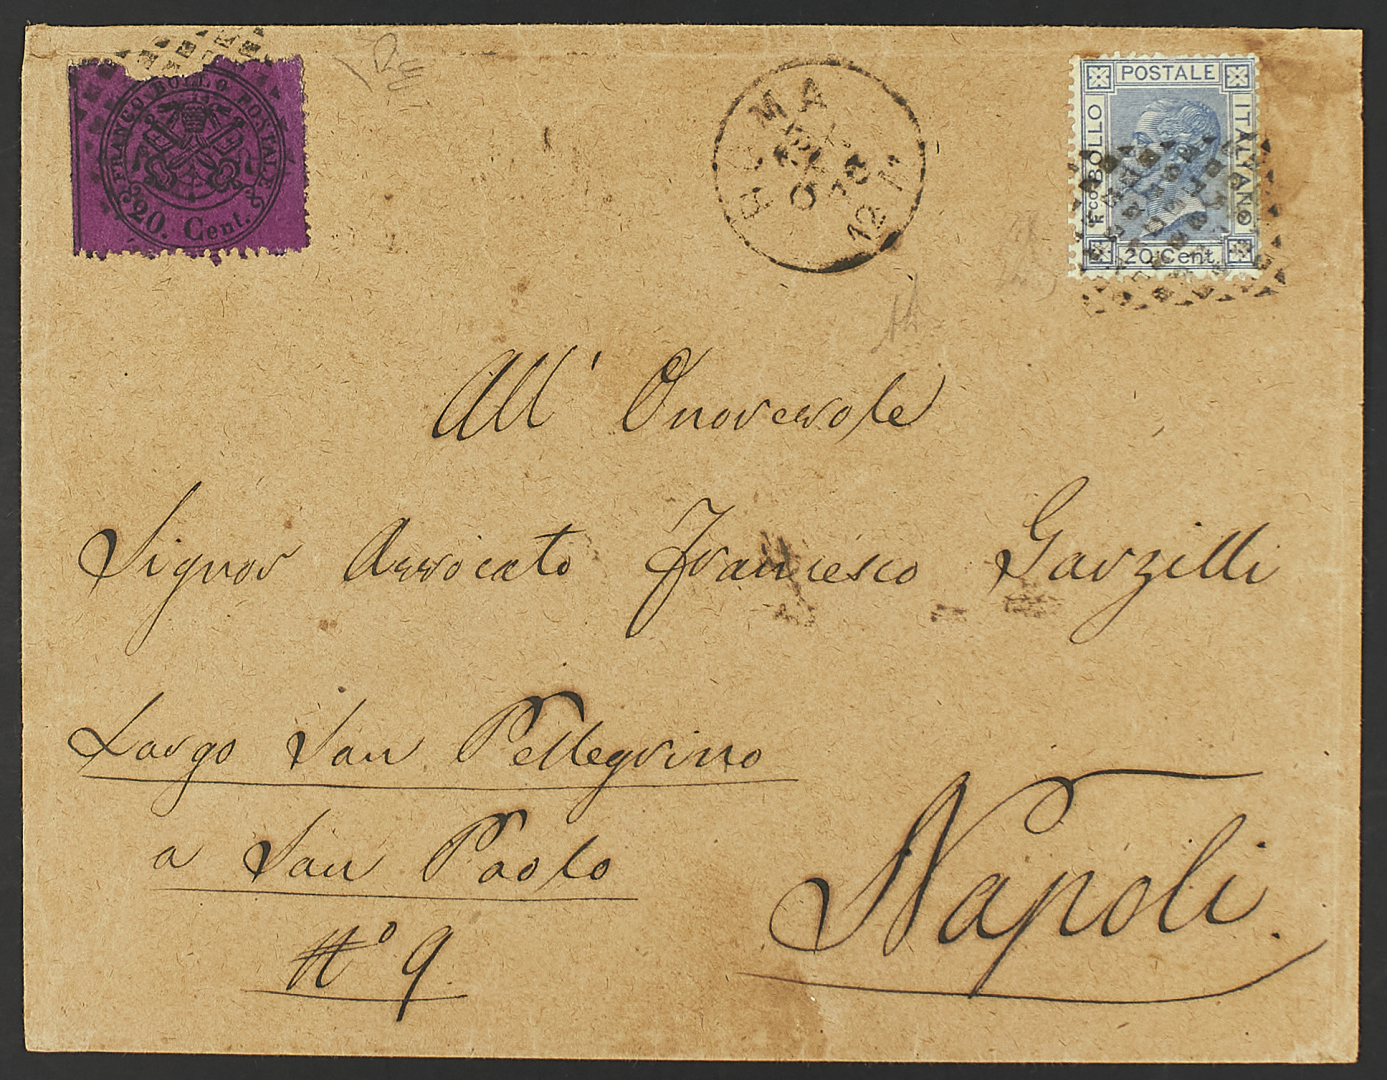 FRANCO BOLLO POSTALE
20. Cent.
ROMA
12
POSTALE
Fco BOLLO
ITALYANO
20 Cent.
All' Onorevole
Signor Avvocato Francesco Garzilli
Largo San Pellegrino
a San Paolo
No 9
Napoli.